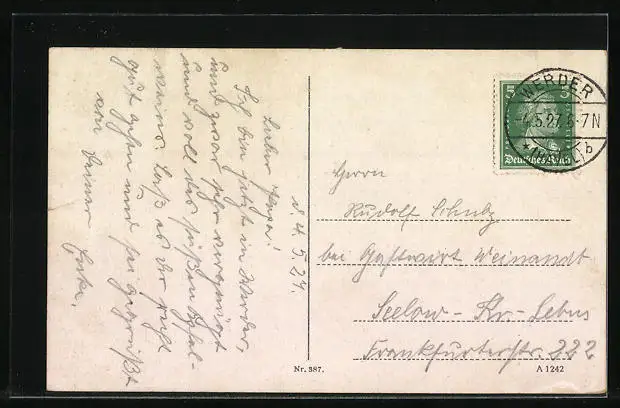 d. 4. 5. 27.
Lieber Papa!
Ich bin jetzt in Werder,
und zwar sehr vergnügt
und voll des süßen Apfel-
weins. Laß es Dir recht
gut gehen und sei gegrüßt
von Deiner
WERDER
-4.5.27.6-7N
5
5
Deutsches Reich
Herrn
Rudolf Schulz
bei Gastwirt Weinandt
Seelow-Kr.-Lebus
Frankfurterstr. 222
Nr. 387.
A 1242